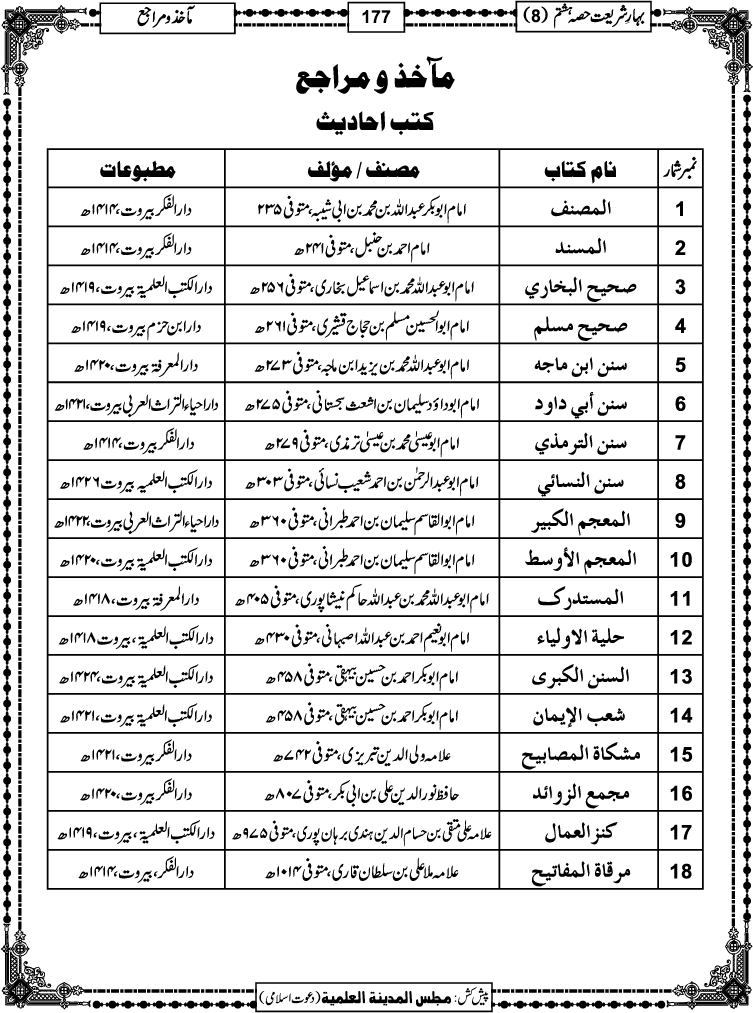 بہارِ شریعت حصہ ہشتم (8)
177
مآخذ و مراجع
مآخذ و مراجع
کتب احادیث
نمبر شمار نام کتاب مصنف / مؤلف مطبوعات
1 المصنف امام ابوبکر عبداللہ بن محمد بن ابی شیبہ، متوفی ۲۳۵ دارالفکر بیروت،۱۴۱۴ھ
2 المسند امام احمد بن حنبل، متوفی ۲۴۱ھ دارالفکر بیروت،۱۴۱۴ھ
3 صحيح البخاري امام ابوعبداللہ محمد بن اسماعیل بخاری، متوفی ۲۵۶ھ دارالکتب العلمیۃ بیروت،۱۴۱۹ھ
4 صحيح مسلم امام ابوالحسین مسلم بن حجاج قشیری، متوفی ۲۶۱ھ دارابن حزم بیروت،۱۴۱۹ھ
5 سنن ابن ماجه امام ابوعبداللہ محمد بن یزید ابن ماجہ، متوفی ۲۷۳ھ دارالمعرفۃ بیروت،۱۴۲۰ھ
6 سنن أبي داود امام ابوداؤد سلیمان بن اشعث سجستانی، متوفی ۲۷۵ھ داراحیاء التراث العربی بیروت،۱۴۲۱ھ
7 سنن الترمذي امام ابوعیسیٰ محمد بن عیسیٰ ترمذی، متوفی ۲۷۹ھ دارالفکر بیروت،۱۴۱۴ھ
8 سنن النسائي امام ابوعبدالرحمٰن بن احمد شعیب نسائی، متوفی ۳۰۳ھ دارالکتب العلمیہ بیروت،۱۴۲۶ھ
9 المعجم الكبير امام ابوالقاسم سلیمان بن احمد طبرانی، متوفی ۳۶۰ھ داراحیاء التراث العربی بیروت،۱۴۲۲ھ
10 المعجم الأوسط امام ابوالقاسم سلیمان بن احمد طبرانی، متوفی ۳۶۰ھ دارالکتب العلمیۃ بیروت،۱۴۲۰ھ
11 المستدرك امام ابوعبداللہ محمد بن عبداللہ حاکم نیشاپوری، متوفی ۴۰۵ھ دارالمعرفۃ بیروت،۱۴۱۸ھ
12 حلية الاولياء امام ابونعیم احمد بن عبداللہ اصبہانی، متوفی ۴۳۰ھ دارالکتب العلمیۃ، بیروت ۱۴۱۸ھ
13 السنن الكبرى امام ابوبکر احمد بن حسین بیہقی، متوفی ۴۵۸ھ دارالکتب العلمیۃ بیروت،۱۴۲۴ھ
14 شعب الإيمان امام ابوبکر احمد بن حسین بیہقی، متوفی ۴۵۸ھ دارالکتب العلمیۃ بیروت،۱۴۲۱ھ
15 مشكاة المصابيح علامہ ولی الدین تبریزی، متوفی ۷۴۲ھ دارالفکر بیروت،۱۴۲۱ھ
16 مجمع الزوائد حافظ نورالدین علی بن ابی بکر، متوفی ۸۰۷ھ دارالفکر بیروت،۱۴۲۰ھ
17 كنز العمال علامہ علی متقی بن حسام الدین ہندی برہان پوری، متوفی ۹۷۵ھ دارالکتب العلمیۃ، بیروت،۱۴۱۹ھ
18 مرقاة المفاتيح علامہ ملا علی بن سلطان قاری، متوفی ۱۰۱۴ھ دارالفکر، بیروت،۱۴۱۴ھ
پیش کش: مجلس المدینۃ العلمیۃ (دعوت اسلامی)